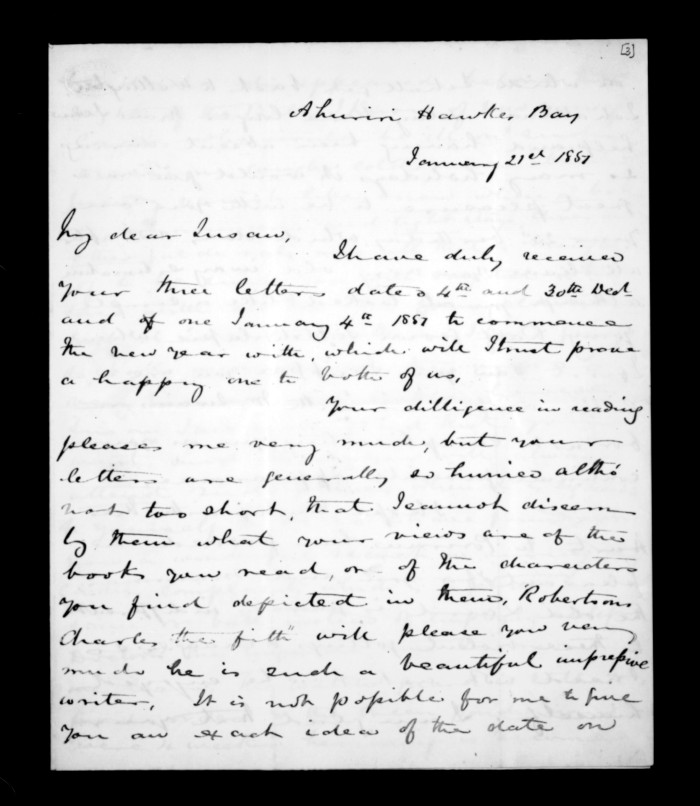 [3]
Ahuriri Hawkes Bay
January 21st 1851
My dear Susan,
I have duly received
your three letters dated 4th and 30th Decr
and of one January 4th 1851 to commence
the new year with, which will I trust prove
a happy one to both of us,
Your dilligence in reading
pleases me very much, but your
letters are generally so hurried altho'
not too short, that I cannot discern
by them what your views are of the
books you read, or of the characters
you find depicted in them, Robertsons
Charles the fifth" will please you very
much he is such a beautiful impressive
writer, It is not possible for me to give
you an exact idea of the date on